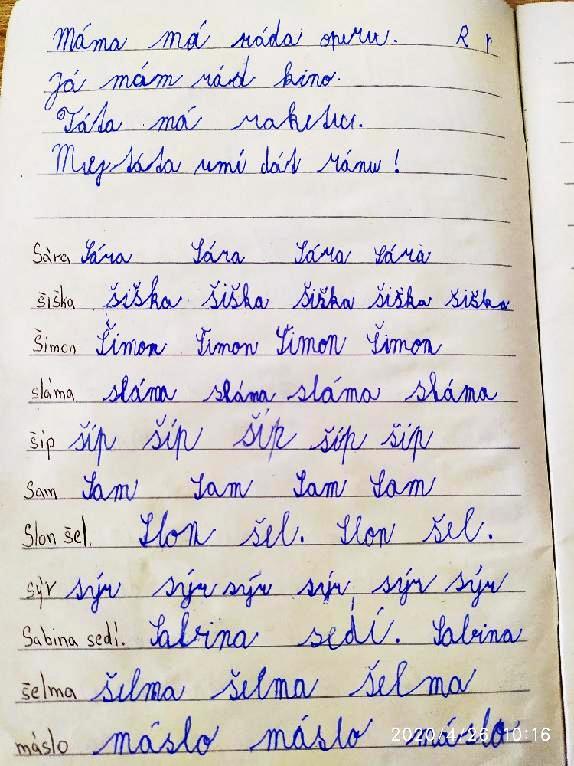 Máma má ráda operu. R r
Já mám rád kino.
Táta má raketu.
Muj táta umí dát ránu!
Sára Sára Sára Sára Sára
šiška šiška šiška šiška šiška šiška
Šimon Šimon Šimon Šimon Šimon
sláma sláma sláma sláma sláma
šíp šíp šíp šíp šíp šíp
Sam Sam Sam Sam Sam
Slon šel. Slon šel. Slon šel.
sýr sýr sýr sýr sýr sýr sýr
Sabina sedí. Sabina sedí. Sabina
šelma šelma šelma šelma
máslo máslo máslo máslo
2020/4/26 10:16